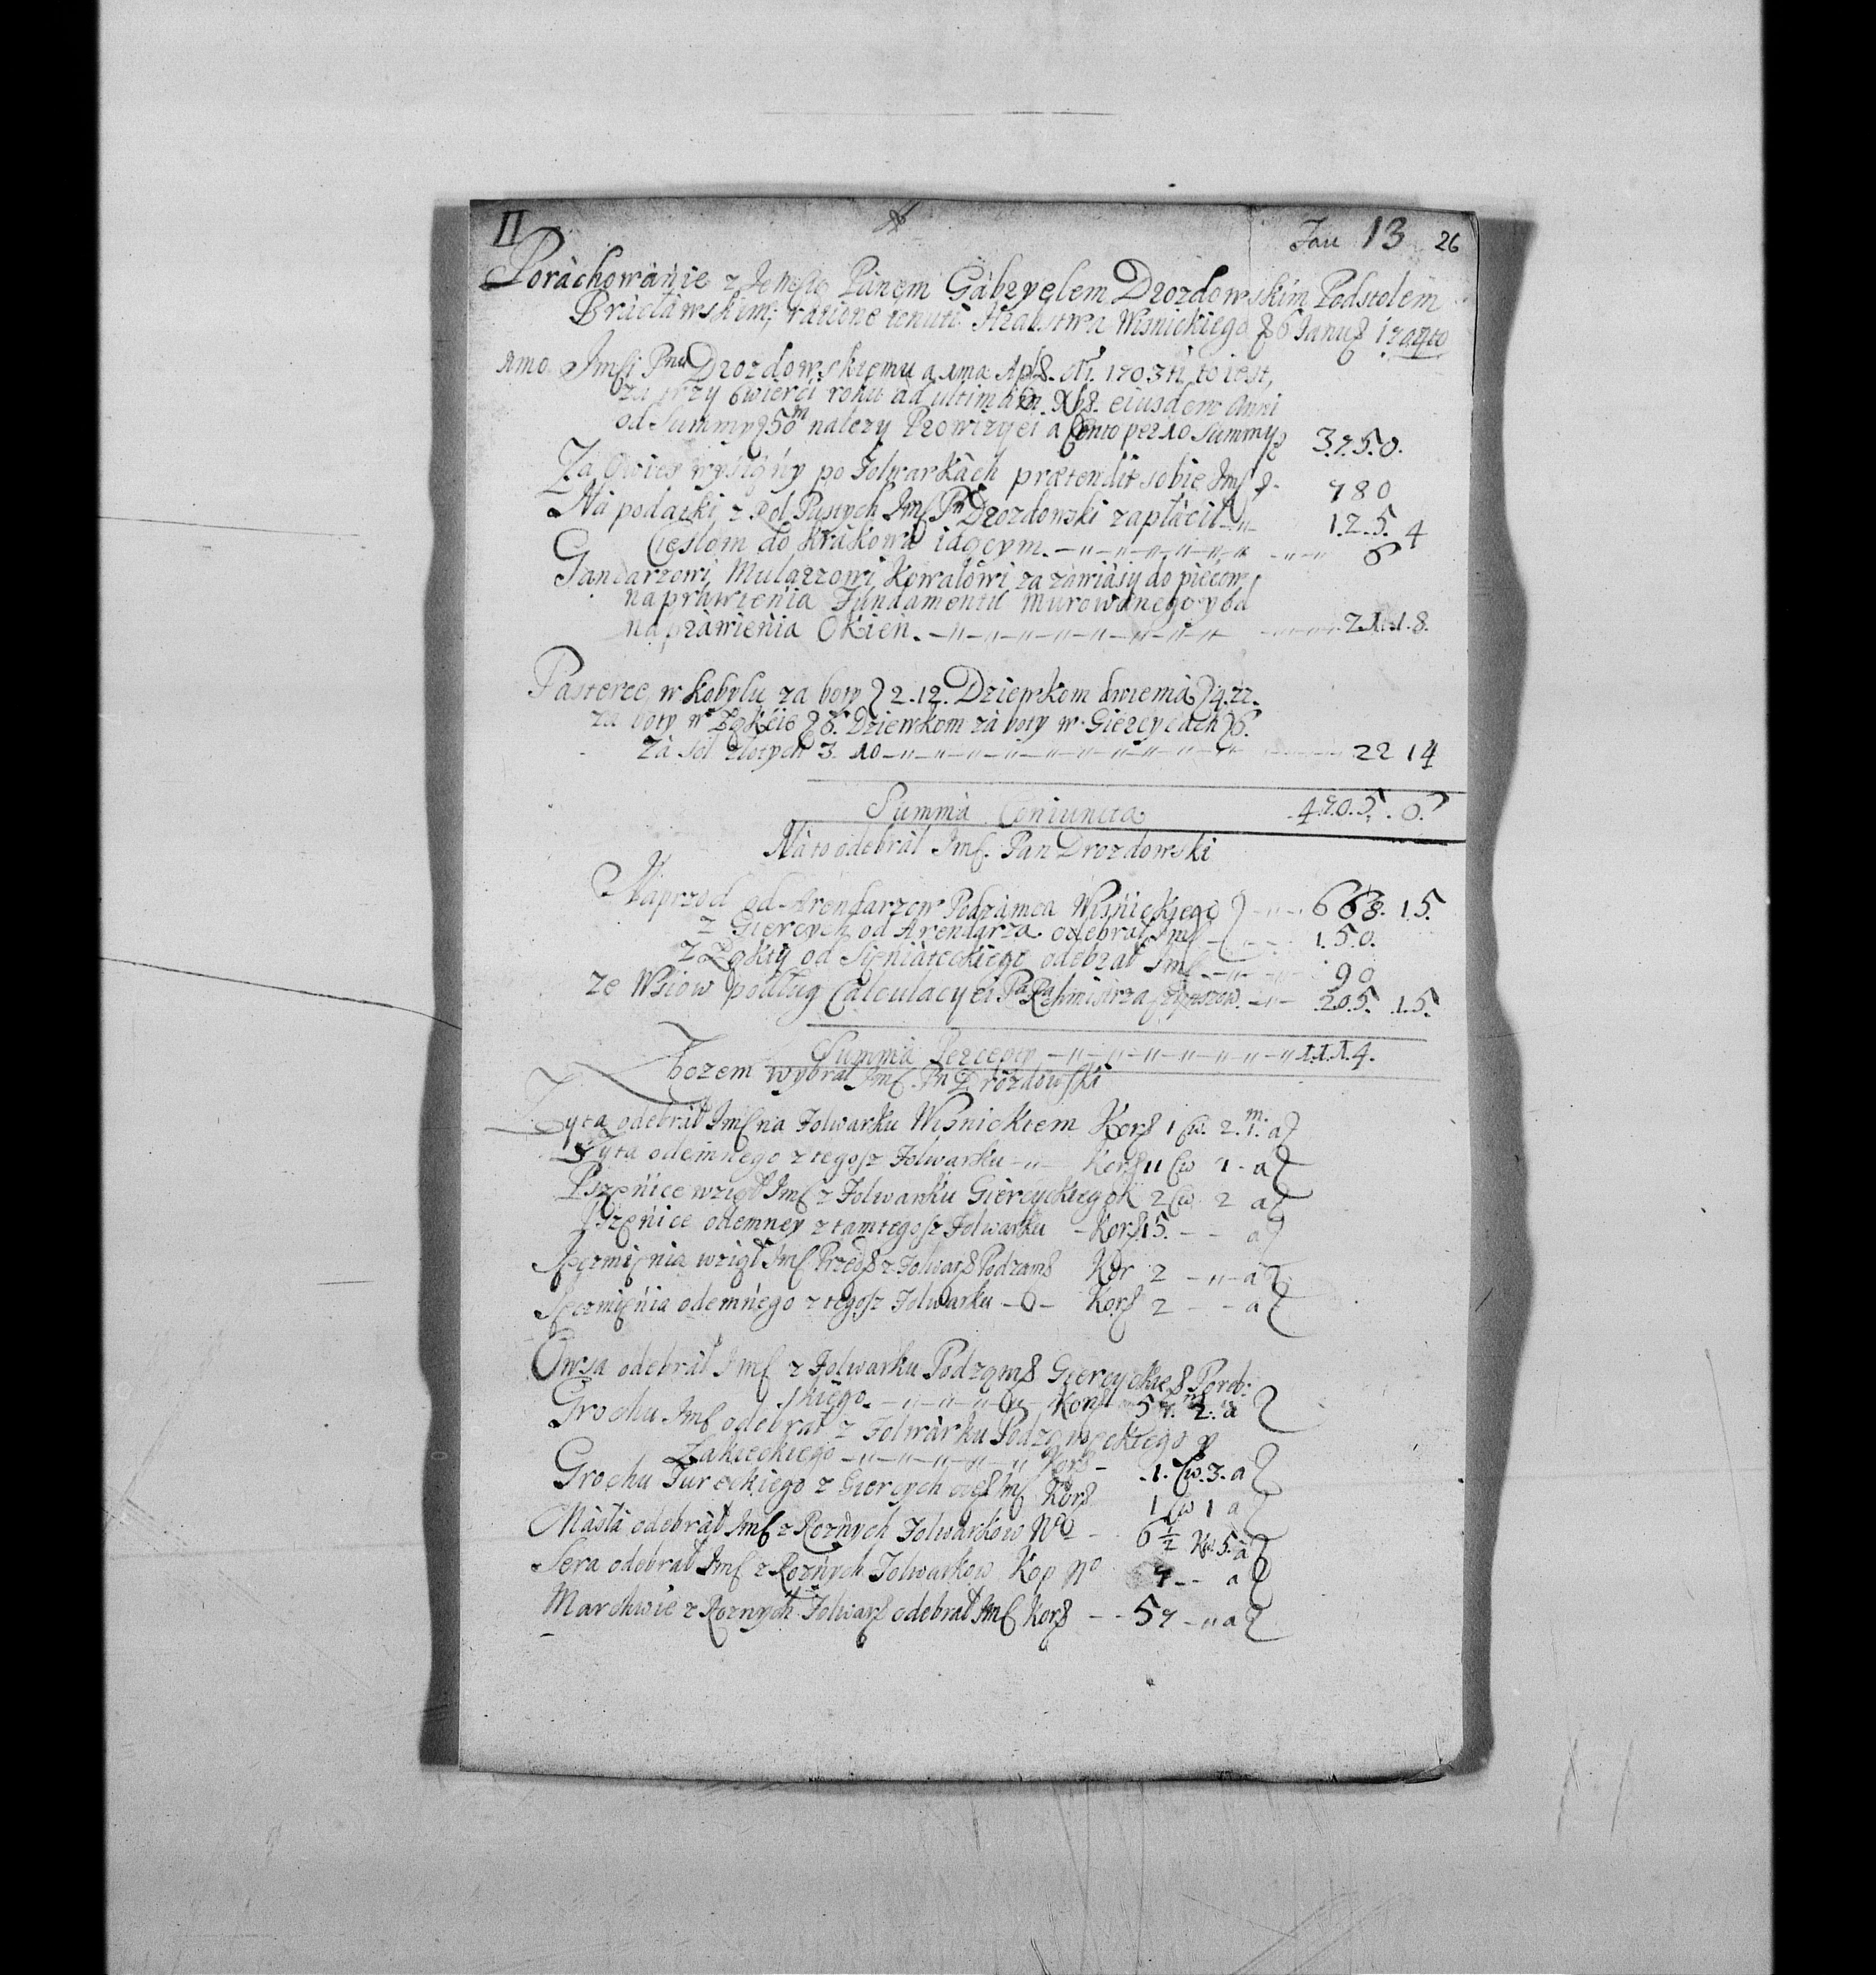 II
Fau 13 26
Poráchowánie z Jemśćią Pánem Gábryelem Drozdowskim Podstolem
Brácłáwskim, ratione tenuti Hrabstwa Wisnickiego 6 Janu 1704to
1mo Jmści Pnu Drozdowskiemu a 1ma Apl. Ai. 1703tii to iest,
za trzy cwierci roku ad ultimam Xb. eiusdem Anni
od Summy 50m nalezy Prowizyei a Cento per 10 Summy 3750.
Za Owies wysiány po Folwarkách prætendit sobie Jmść 780
Ná podatki z Rol Pustych Jmść Pn Drozdowski zapłácił 125 4
Cieslom do Krakowa idącym. 6
Gandarzowi, Mularzowi, Kowalowi za zawiásy do piecow
naprawienia Fundamentu murowánego y od
naprawienia Okien. 21.18.
Pasterce w Kobylu za boty 2.12. Dziewkom dwiemá 4.22.
za boty w Łąkcie 6. Dziewkom zá boty w Giercycach 6.
Zá sol złotych 3. 10 22 14
Summá Coniuncta 4705. 6
Ná to odebrał Jmść. Pan Drozdowski
Naprzod od Arendarzow Podzámcá Wisnickiego 668. 15.
z Giercych od Arendarza odebrał Jmść 150.
z Łąkty od Sieniáteckiego odebrał Jmść 90
Ze Wsiow podług Calculacyei 205. 15.
Summá Percepty 1114.
Zbozem wybrał Jmść. Pn Drozdowski
Zyta odebrał Jmść na Folwarku Wisnickiem Kor 1 Cw. 2. m. 1. a
Zyta odemnego z tegosz Folwarku Kor 11 Cw 1 a
Pszenice wziął Jmść z Folwarku Giercyckiego K 2 Cw 2 a
Pszenice odemney z tamtegosz Folwarku Kor 15. a
Jęczmięnia wziął Jmść z Folwar Podzam Kor 2 a
Jęczmięnia odemnego z tegosz Folwarku Kor 2 a
Owsa odebrał Jmść z Folwarku Podzam Giercyckie Poręb:
skiego. Kor 57. 2. a
Grochu Jmść odebrał z Folwárku Podzameckiego y
Łakteckiego Kor 1. Cw. 3. a
Grochu Tureckiego z Giercych Jmść Kor 1 Cw 1 a
Másłá odebrał Jmść z Roznych Folwarkow No 6 1/2 Kw. 5. a
Sera odebrał Jmść z Roznych Folwarkow Kop No 7 a
Marchwie z Roznych Folwar odebrał Jmść Kor 57 a